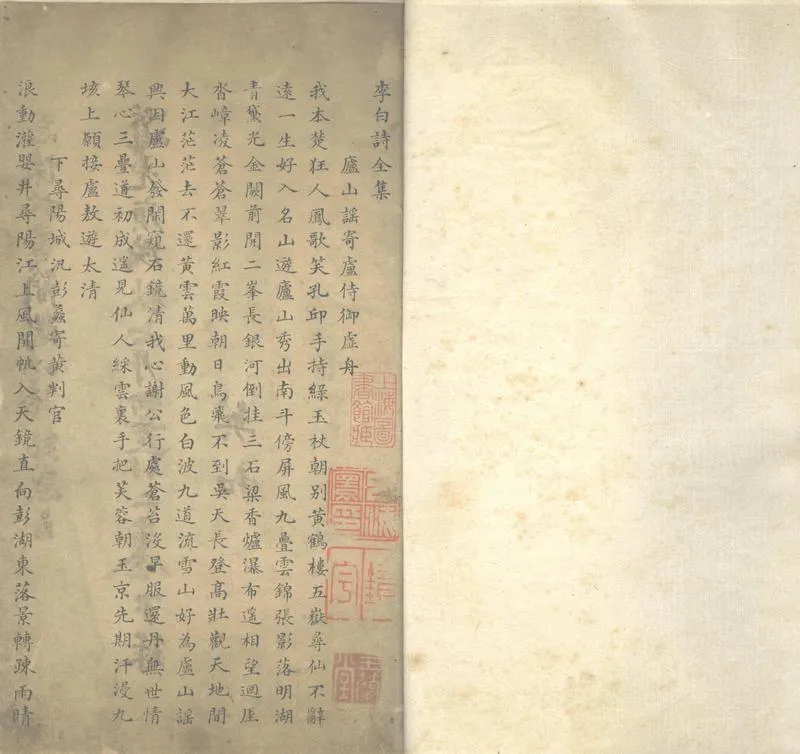 李白詩全集
廬山謠寄盧侍御虛舟
我本楚狂人鳳歌笑孔邱手持綠玉杖朝別黃鶴樓五嶽尋仙不辭
遠一生好入名山遊廬山秀出南斗傍屏風九疊雲錦張影落明湖
青黛光金闕前開二峯長銀河倒挂三石梁香爐瀑布遙相望迴厓
沓嶂凌蒼蒼翠影紅霞映朝日鳥飛不到吳天長登高壯觀天地間
大江茫茫去不還黃雲萬里動風色白波九道流雪山好為廬山謠
興因廬山發閑窺石鏡清我心謝公行處蒼苔沒早服還丹無世情
琴心三疊道初成遙見仙人綵雲裏手把芙蓉朝玉京先期汗漫九
垓上願接盧敖遊太清
下尋陽城汎彭蠡寄黃判官
浪動灌嬰井尋陽江上風開帆入天鏡直向彭湖東落景轉疎雨晴
上海圖書館藏